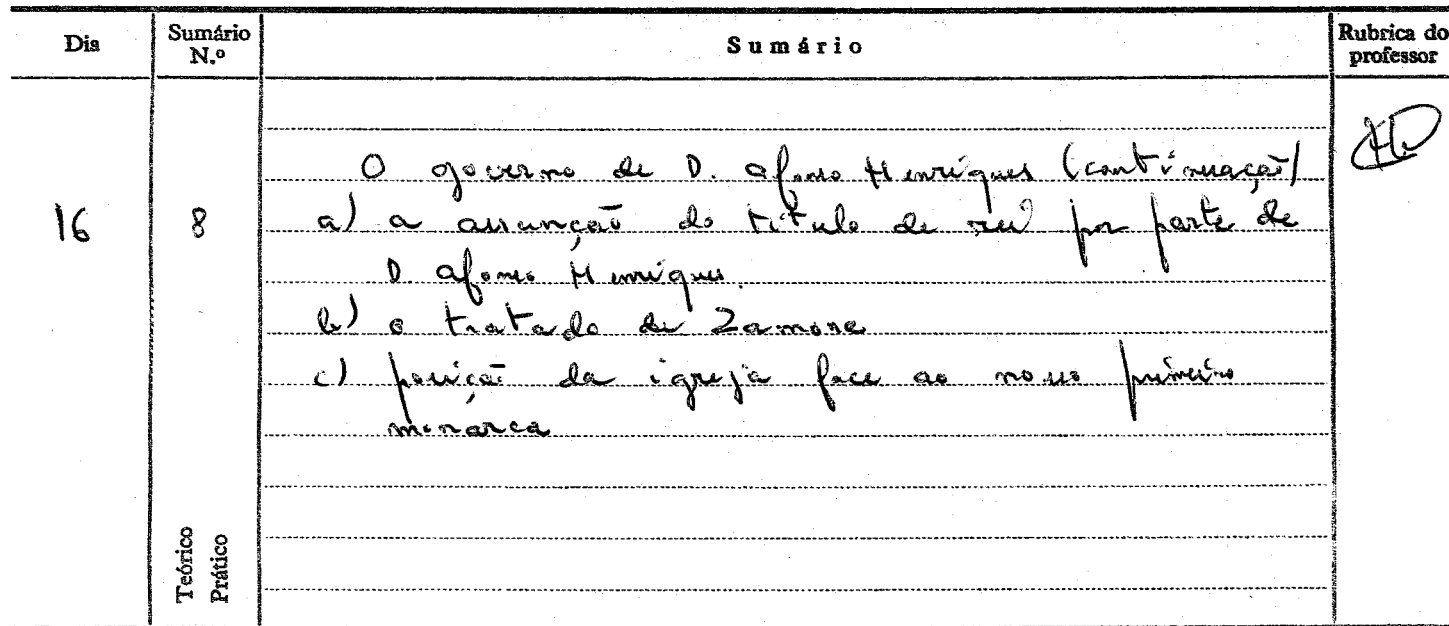 Dia Sumário N.º Sumário Rubrica do professor
O governo de D. Afonso Henriques (continuação)
16 8 a) a assunção do título de rei por parte de
D. Afonso Henriques.
b) o tratado de Zamora
c) posição da igreja face ao nosso primeiro
monarca
Teórico
Prático